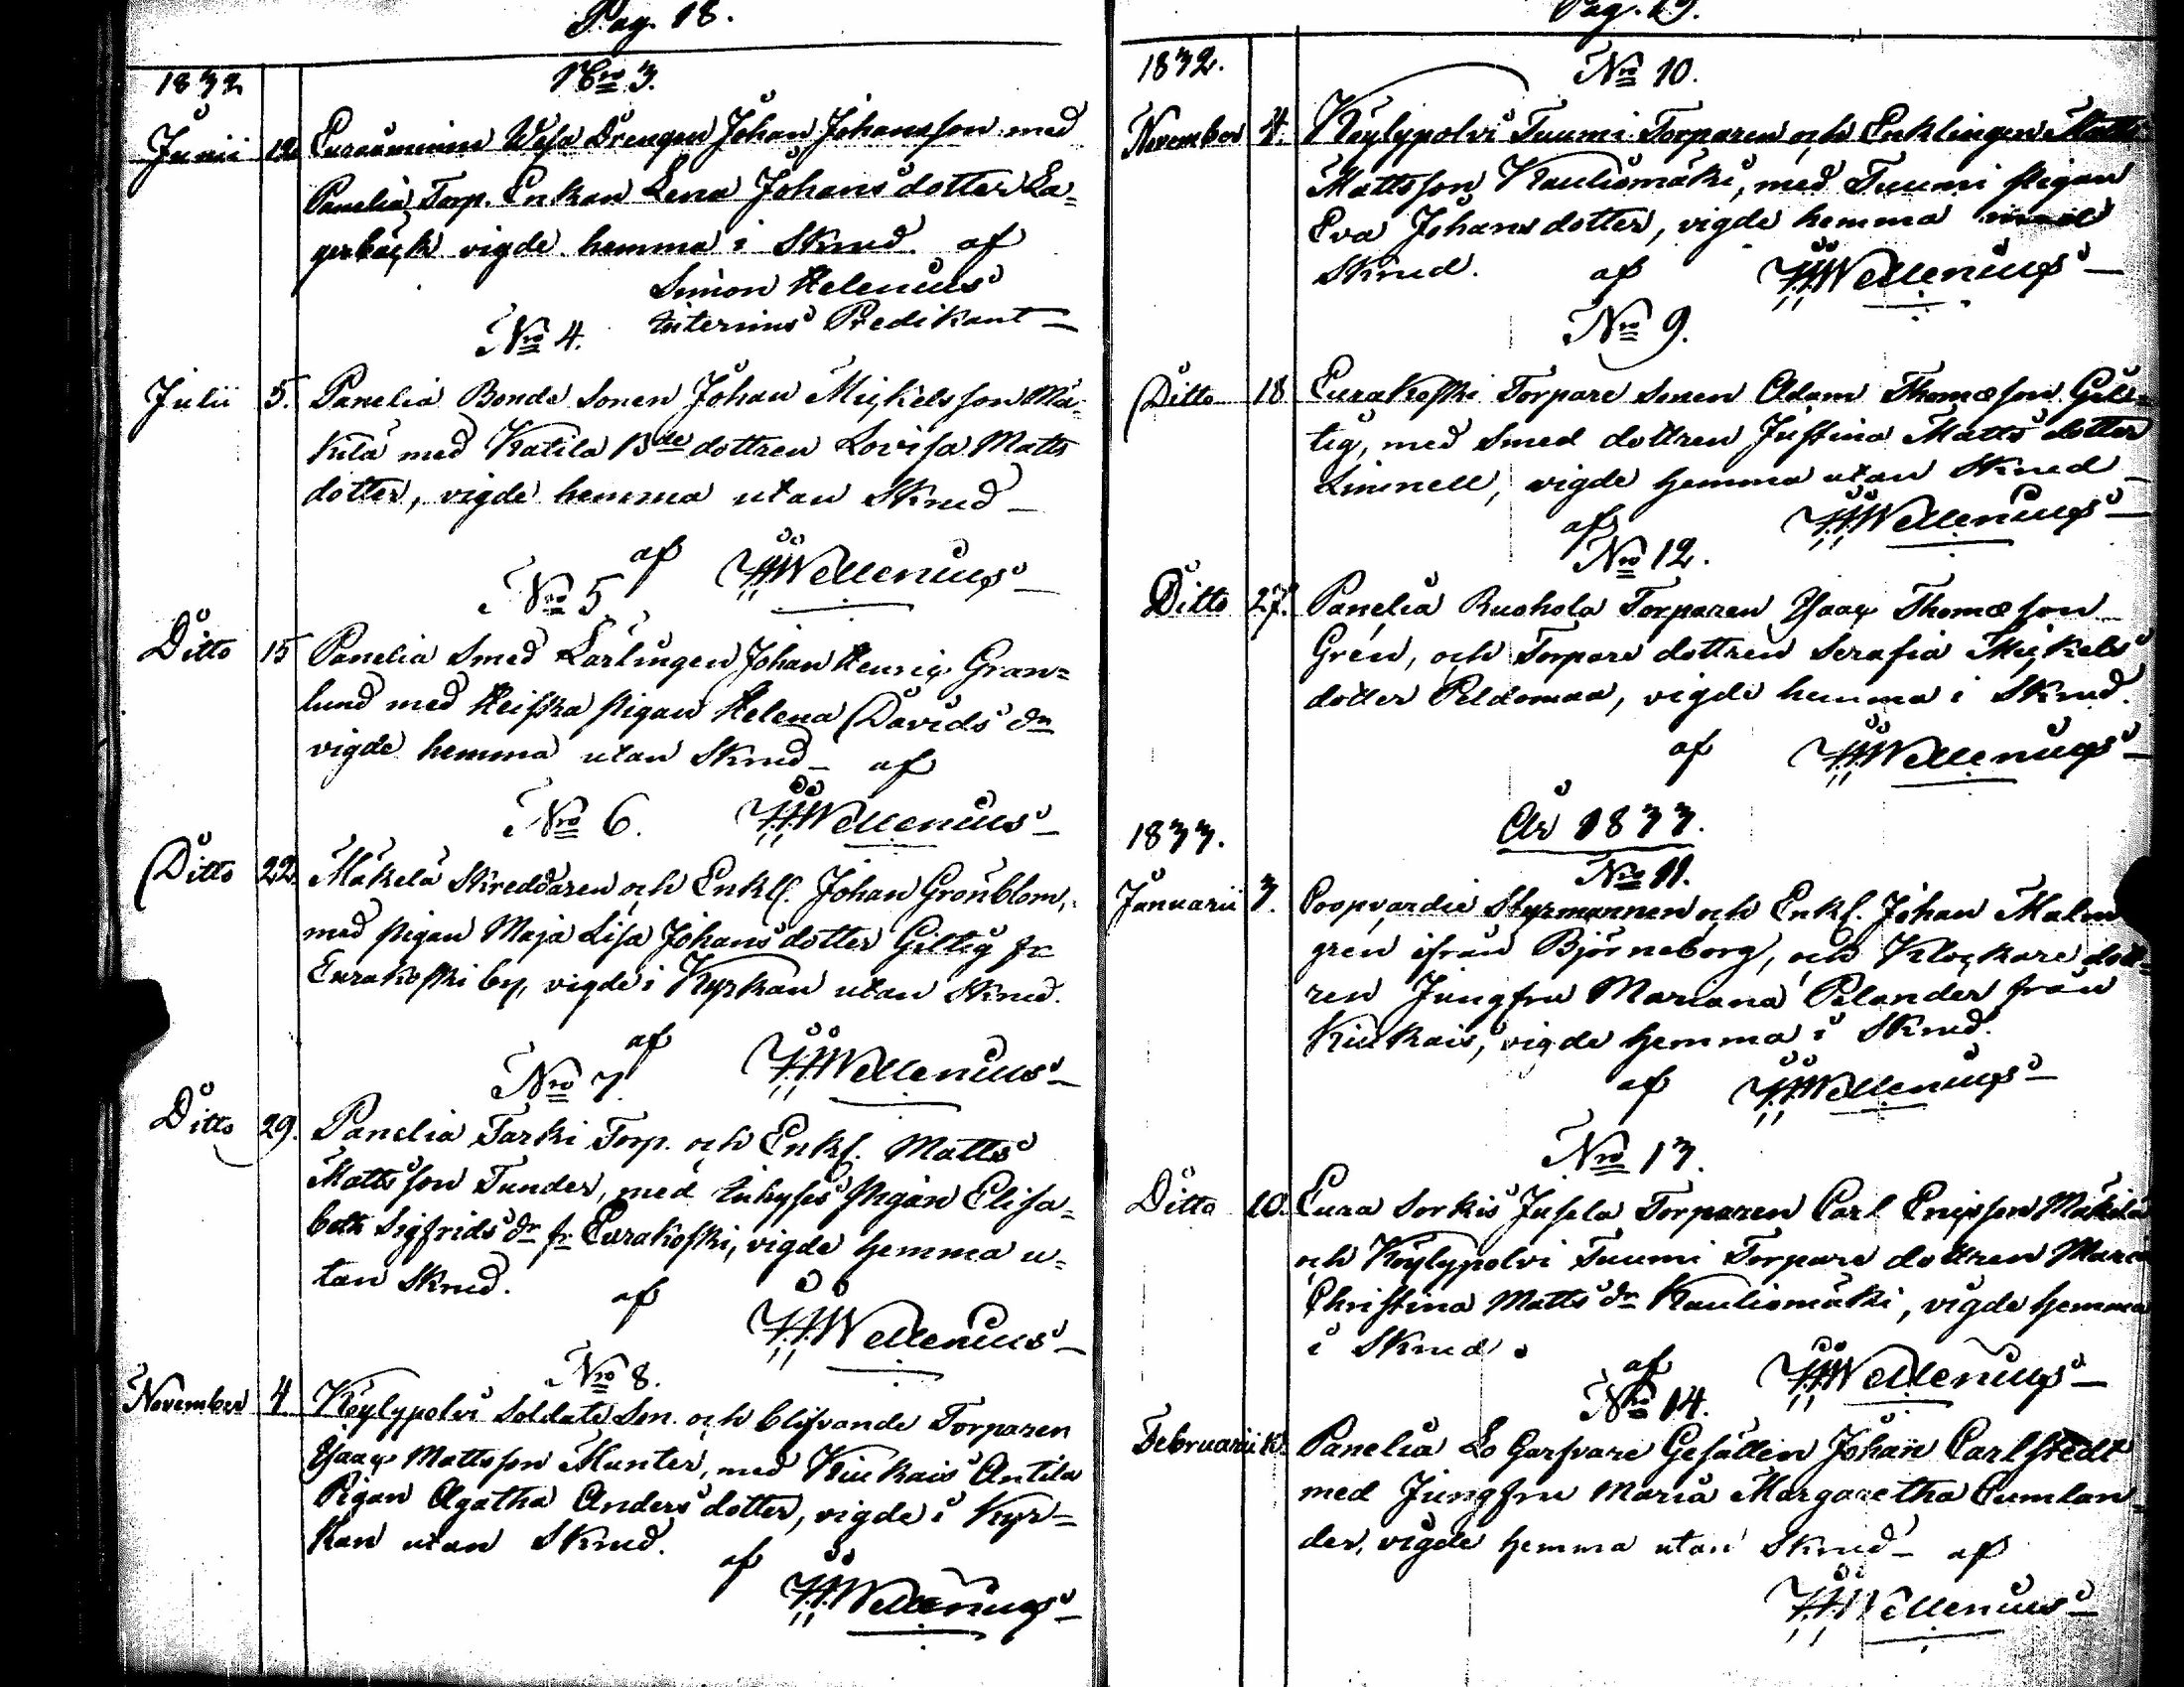 Pag. 18.
1832
Nro 3.
Junii 12. Euraåminne Wesa Drengen Johan Johansson med
Panelia Torp. Enkan Lena Johansdotter La=
gerbäck vigde hemma i Skrud af
Simon Helenius
Interims Predikant
Nro 4.
Julii 5. Panelia Bonde Sonen Johan Mickelsson Mä=
kilä med Katila Bde dottren Lovisa Matts
dotter, vigde hemma utan Skrud
af Wellenius
Nro 5
Ditto 15 Panelia Smed Lärlingen Johan Henric Gran=
lund med Heiska pigan Helena Davids dr
vigde hemma utan Skrud af
Nro 6. Wellenius
Ditto 22. Mäkelä Skreddaren och Enkl. Johan Grönblom,
med pigan Maja Lisa Johansdotter Giltig fr
Eurakoski by, vigde i Kyrkan utan Skrud.
af Wellenius
Nro 7.
Ditto 29. Panelia Tarki Torp. och Enkl. Matts
Mattsson Tunder, med Inhyses Pigan Elisa=
beth Sigfrids dr fr Eurakoski, vigde hemma u=
tan Skrud. af
Wellenius
Nro 8.
November 4 Köylypolvi Soldate Son och blifvande Torparen
Isaac Mattsson Munter, med Kiukais Antila
Pigan Agatha Anders dotter, vigde i Kyr=
kan utan Skrud.
af Wellenius
Pag. 19.
1832.
Nro 10.
November 4. Köylypolvi Tuumi Torparen och Enklingen Matts
Mattsson Kauliomäki, med Tuumi pigan
Eva Johans dotter, vigde hemma
Skrud. af Wellenius
Nro 9.
Ditto 18 Eurakoski Torpare Sonen Adam Thomæson Gil=
tig, med Smed dottren Justina Matts dotter
Linnell, vigde hemma utan Skrud
af Wellenius
Nro 12.
Ditto 27. Panelia Ruohola Torparen Isaac Thomæson
Grén, och Torpare dottren Serafia Mickels
dotter Peldomaa, vigde hemma i Skrud.
af Wellenius
1833. År 1833.
Nro 11.
Januarii 3. Coopvardie Styrmannen och Enkl. Johan Malm
gren ifrån Björneborg, och Klockare dott=
ren Jungfru Mariana Polander från
Kiukais, vigde hemma i Skrud.
af Wellenius
Nro 13.
Ditto 10. Eura Sorkis Jusela Torparen Carl Ericsson Mäkilä
och Köylypolvi Tuumi Torpare dottren Maria
Christina Matts dr Kauliomäki, vigde hemma
i Skrud.
af Wellenius
Nro 14.
Februarii Panelia Lo Garfvare Gesällen Johan Carlstedt
med Jungfru Maria Margaretha Cumlan=
der, vigde hemma utan Skrud af
Wellenius